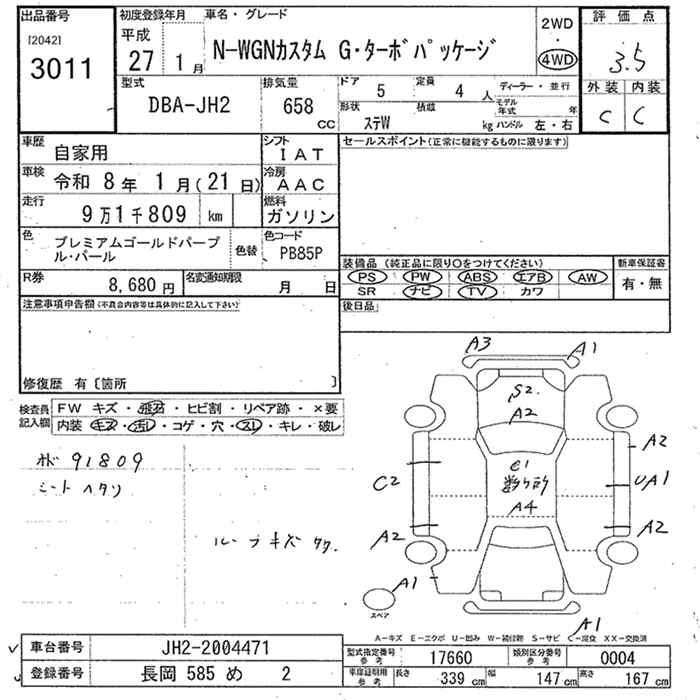 出品番号
[2042]
3011
初度登録年月
平成
27 1月
車名・グレード
N-WGNカスタム G・ターボパッケージ
2WD
・
4WD
評価点
3.5
外装 内装
C C
型式
DBA-JH2
排気量
658 cc
ドア 5
定員 4人
ディーラー・並行
形状
ステW
積載 kg
モデル年式 年
ハンドル 左・右
車歴 自家用
シフト IAT
セールスポイント(正常に機能するものに限ります)
車検 令和 8年 1月(21日)
冷房 AAC
走行 9万1千809 km
燃料 ガソリン
色 プレミアムゴールドパープル・パール
色替
色コード PB85P
装備品(純正品に限り○をつけてください)
PS PW ABS エアB AW
SR ナビ TV カワ
新車保証書
有・無
R券 8,680円
名変通知期限 月 日
後日品
注意事項申告欄(不具合内容等は具体的に記入して下さい)
修復歴 有〔箇所 〕
検査員記入欄
FW キズ・飛石・ヒビ割・リペア跡・×要
内装 キズ・汚レ・コゲ・穴・スレ・キレ・破レ
A3 A1
S2
A2
A2
C2
UA1
A4
A2 A2
A1
A1
スペア
91809
シートヘタリ
ルーフキズ
A-キズ E-エクボ U-凹み W-補修跡 S-サビ C-腐食 XX-交換済
車台番号 JH2-2004471
登録番号 長岡 585 め 2
型式指定番号 参考 17660
類別区分番号 参考 0004
車庫証明用 参考
長さ 339 cm
幅 147 cm
高さ 167 cm